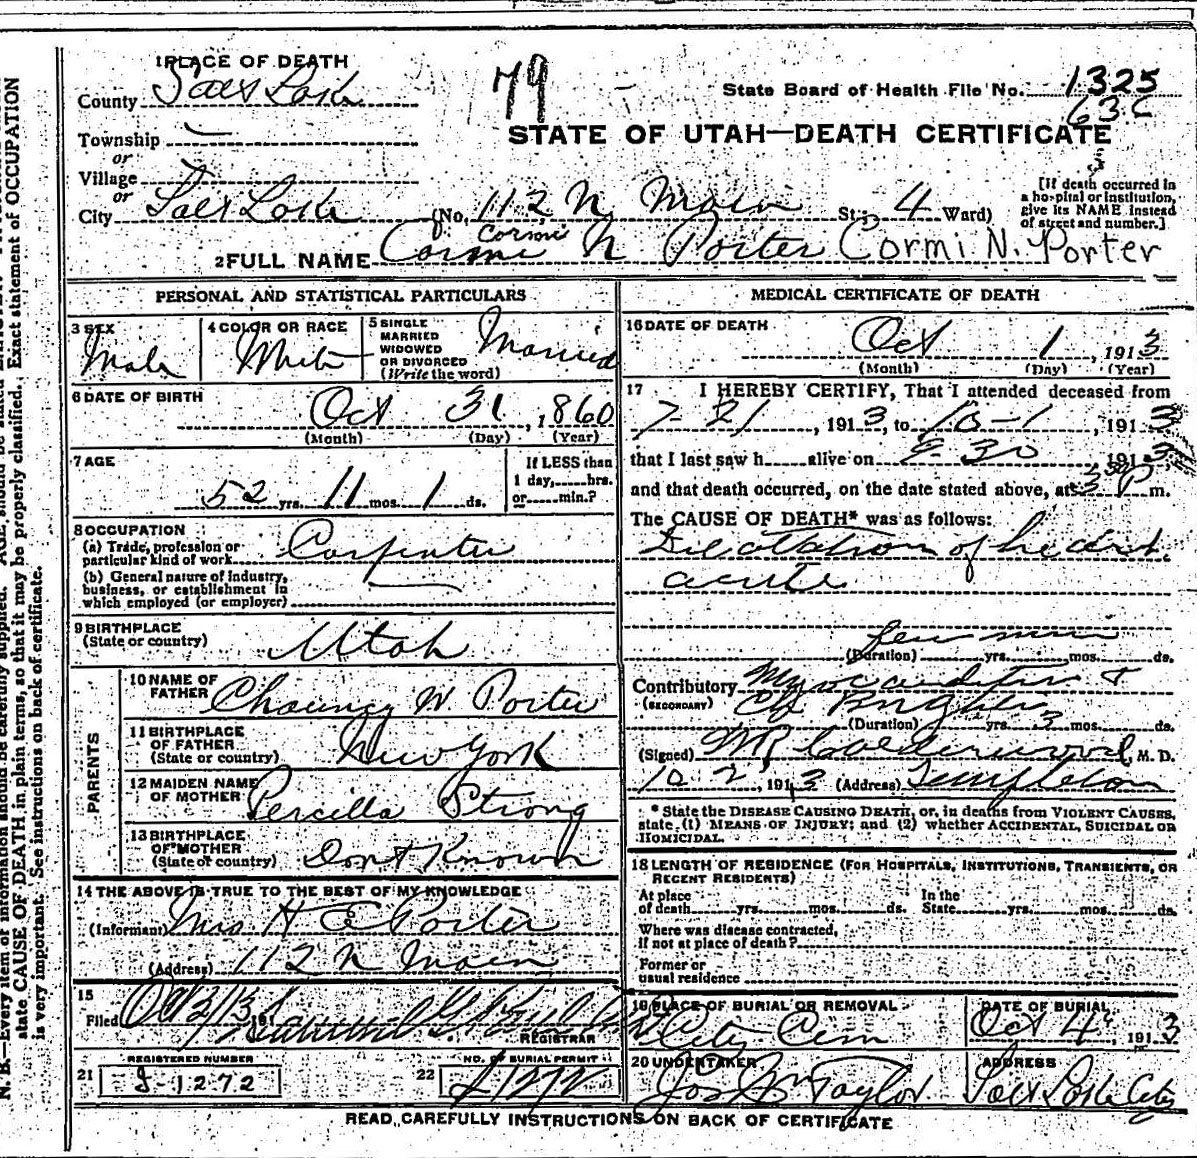 1 PLACE OF DEATH
County Salt Lake
79
State Board of Health File No. 1325
63 C
STATE OF UTAH—DEATH CERTIFICATE
Township
or
Village
or
City Salt Lake (No. 112 N Main St.; 4 Ward)
[If death occurred in
a hospital or institution,
give its NAME instead
of street and number.]
Cormi
2 FULL NAME Cormi N Porter Cormi N. Porter
PERSONAL AND STATISTICAL PARTICULARS
3 SEX
Male
4 COLOR OR RACE
White
5 SINGLE
MARRIED
WIDOWED
OR DIVORCED
(Write the word)
Married
6 DATE OF BIRTH
Oct 31, 1860
(Month) (Day) (Year)
7 AGE
52 yrs. 11 mos. 1 ds.
If LESS than
1 day, hrs.
or min.?
8 OCCUPATION
(a) Trade, profession or
particular kind of work Carpenter
(b) General nature of industry,
business, or establishment in
which employed (or employer)
9 BIRTHPLACE
(State or country) Utah
PARENTS
10 NAME OF
FATHER Chauncy W. Porter
11 BIRTHPLACE
OF FATHER
(State or country) New York
12 MAIDEN NAME
OF MOTHER Percilla Strong
13 BIRTHPLACE
OF MOTHER
(State or country) Dont Known
14 THE ABOVE IS TRUE TO THE BEST OF MY KNOWLEDGE
(Informant) Mrs H E Porter
(Address) 112 N Main
15
Filed Oct 2/13 191
REGISTRAR
21
REGISTERED NUMBER
J-1272
22
NO. OF BURIAL PERMIT
J1272
MEDICAL CERTIFICATE OF DEATH
16 DATE OF DEATH
Oct 1, 1913
(Month) (Day) (Year)
17 I HEREBY CERTIFY, That I attended deceased from
7-21, 1913, to 10-1, 1913
that I last saw h alive on 9-30 1913
and that death occurred, on the date stated above, at 3 P m.
The CAUSE OF DEATH* was as follows:
Dilatation of heart
acute
few min
(Duration) yrs. mos. ds.
Contributory Myocarditis &
(SECONDARY) Ch Brights
(Duration) yrs. 3 mos. ds.
(Signed) Calderwood, M. D.
10-2, 1913 (Address) Templeton
* State the DISEASE CAUSING DEATH, or, in deaths from VIOLENT CAUSES,
state (1) MEANS OF INJURY; and (2) whether ACCIDENTAL, SUICIDAL OR
HOMICIDAL.
18 LENGTH OF RESIDENCE (FOR HOSPITALS, INSTITUTIONS, TRANSIENTS, OR
RECENT RESIDENTS)
At place
of death yrs. mos. ds.
In the
State yrs. mos. ds.
Where was disease contracted,
if not at place of death?
Former or
usual residence
19 PLACE OF BURIAL OR REMOVAL
City Cem
DATE OF BURIAL
Oct 4, 1913
20 UNDERTAKER
Jos Wm Taylor
ADDRESS
Salt Lake City
READ CAREFULLY INSTRUCTIONS ON BACK OF CERTIFICATE
N. B.—Every item of information should be carefully supplied.
state CAUSE OF DEATH in plain terms, so that it may be properly classified. Exact statement of OCCUPATION
is very important. See instructions on back of certificate.